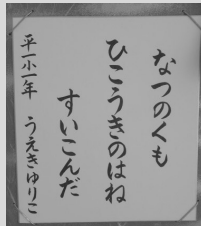 なつのくも
ひこうきのはね
すいこんだ
平一小一年 うえきゆりこ